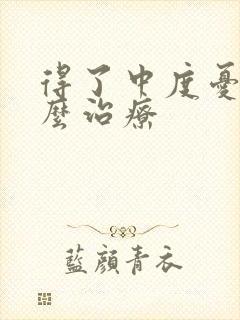 得了中度憂
麼治療
藍顏青衣